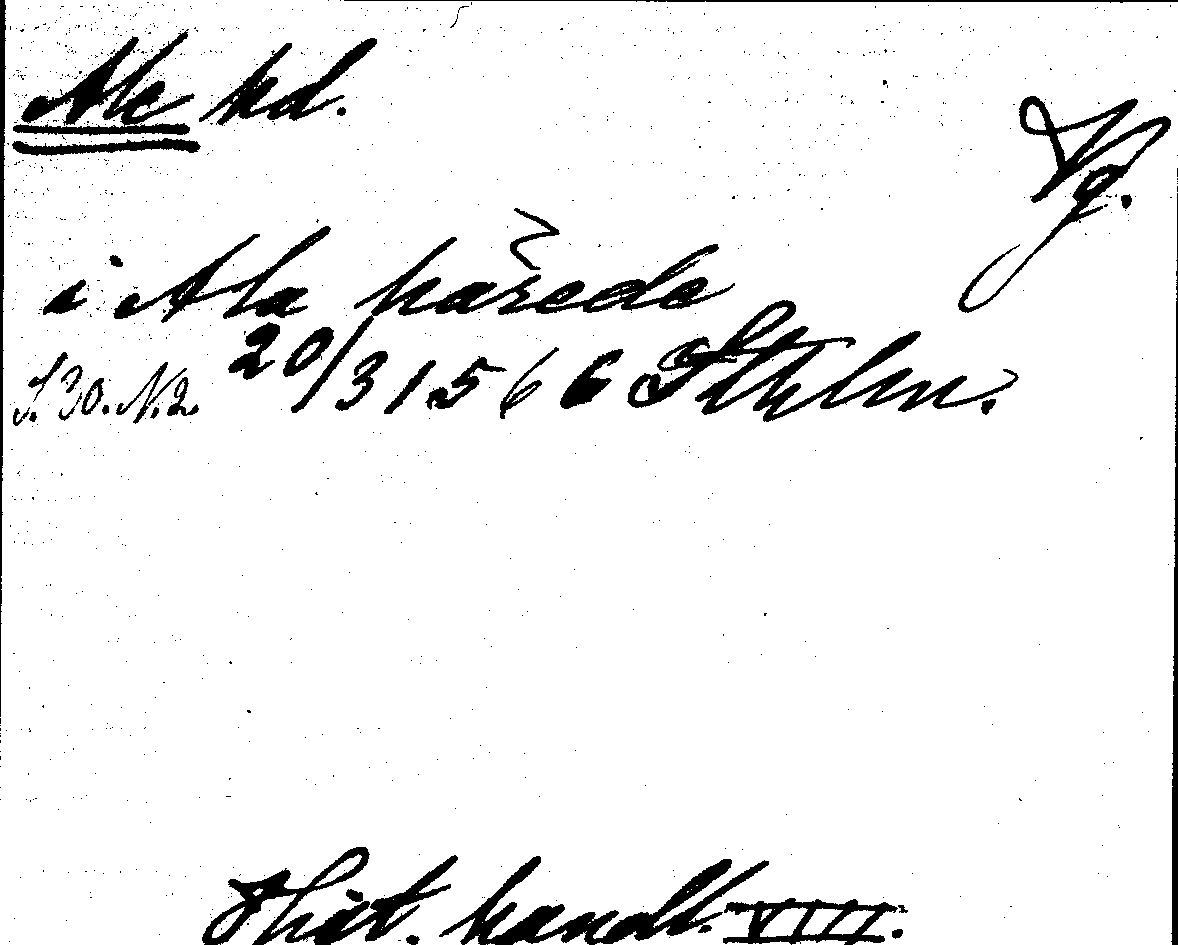 Ale hd.
Vg.
i Ala härede
S. 30. N. 2. 20/3 1566 Sthlm.
Hist. handl. VIII.